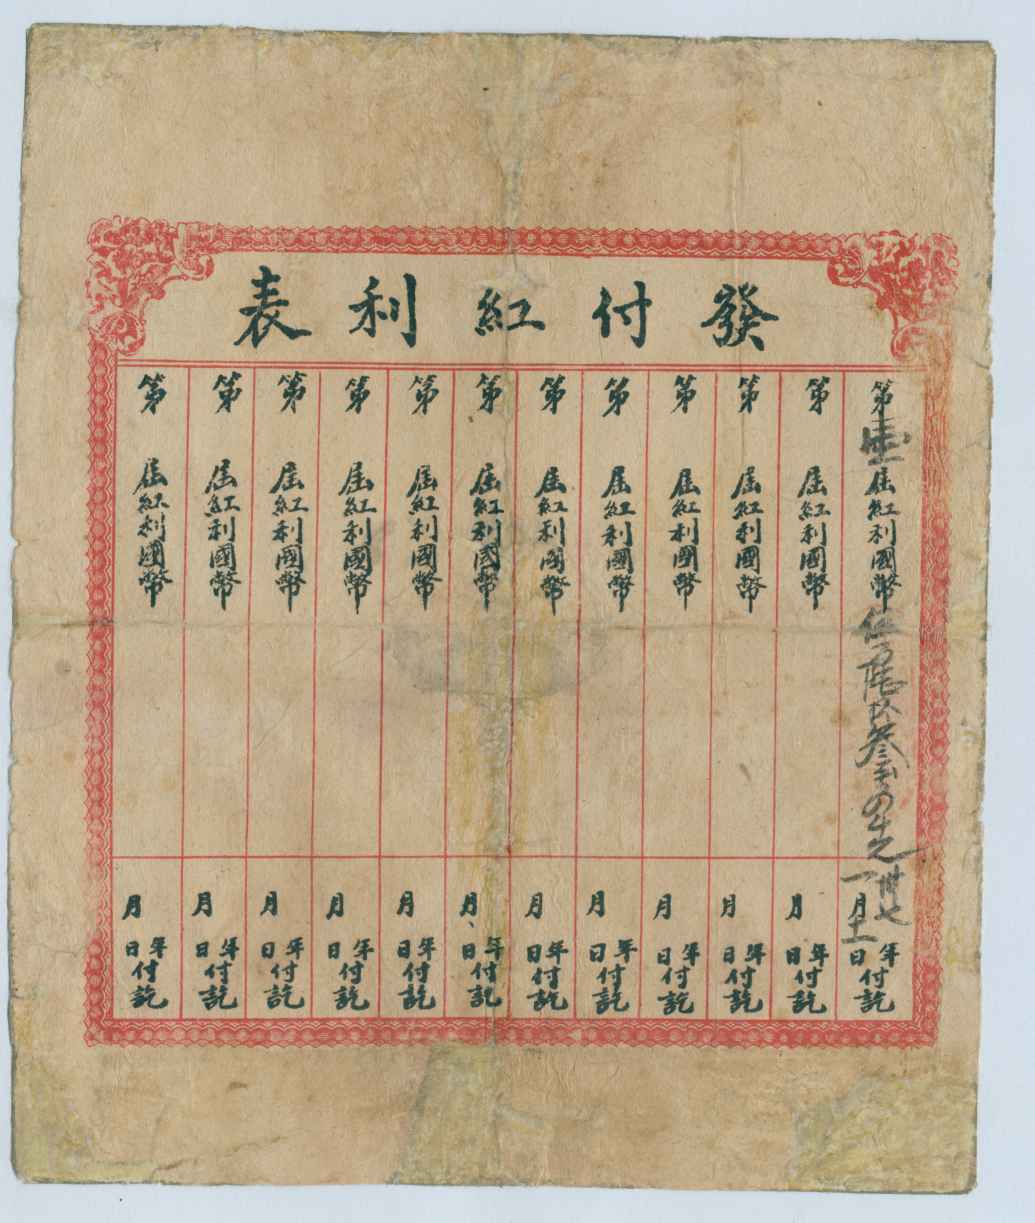 發付紅利表
第壹屆紅利國幣伍陸拾叁 卅七年一月十一日付訖
第 屆紅利國幣 年 月 日付訖
第 屆紅利國幣 年 月 日付訖
第 屆紅利國幣 年 月 日付訖
第 屆紅利國幣 年 月 日付訖
第 屆紅利國幣 年 月 日付訖
第 屆紅利國幣 年 月 日付訖
第 屆紅利國幣 年 月 日付訖
第 屆紅利國幣 年 月 日付訖
第 屆紅利國幣 年 月 日付訖
第 屆紅利國幣 年 月 日付訖
第 屆紅利國幣 年 月 日付訖